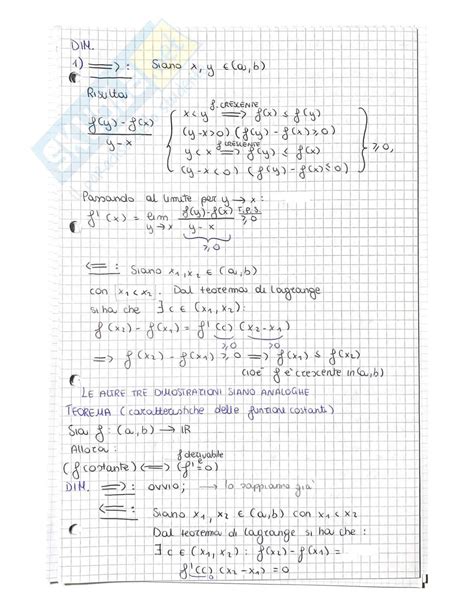 DIM.
1) ⟹ : Siano x, y ∈ (a, b)
Risulta
f(y) - f(x) / y - x { x < y ⟹ (f. CRESCENTE) f(x) ≤ f(y)
(y-x>0) (f(y) - f(x) ≥ 0)
y < x ⟹ (f CRESCENTE) f(y) ≤ f(x)
(y-x<0) (f(y) - f(x) ≤ 0) } ≥ 0,
Passando al limite per y → x :
f'(x) = lim y→x f(y)-f(x) / y - x T.P.S. ≥ 0
≥ 0
⟸ : Siano x1, x2 ∈ (a, b)
con x1 < x2. Dal teorema di Lagrange
si ha che ∃ c ∈ (x1, x2):
f(x2) - f(x1) = f'(c) (x2-x1)
≥0 ≥0
⟹ f(x2) - f(x1) ≥ 0 ⟹ f(x1) ≤ f(x2)
cioè f è crescente in (a, b)
LE ALTRE TRE DIMOSTRAZIONI SIANO ANALOGHE
TEOREMA (caratteristiche delle funzioni costanti)
Sia f : (a, b) → IR
Allora :
f derivabile
(f costante) ⟺ (f' = 0)
DIM. ⟹ : ovvio; → lo sappiamo già
⟸ : Siano x1, x2 ∈ (a, b) con x1 < x2
Dal teorema di Lagrange si ha che :
∃ c ∈ (x1, x2) : f(x2) - f(x1) =
f'(c) (x2 - x1) = 0
0